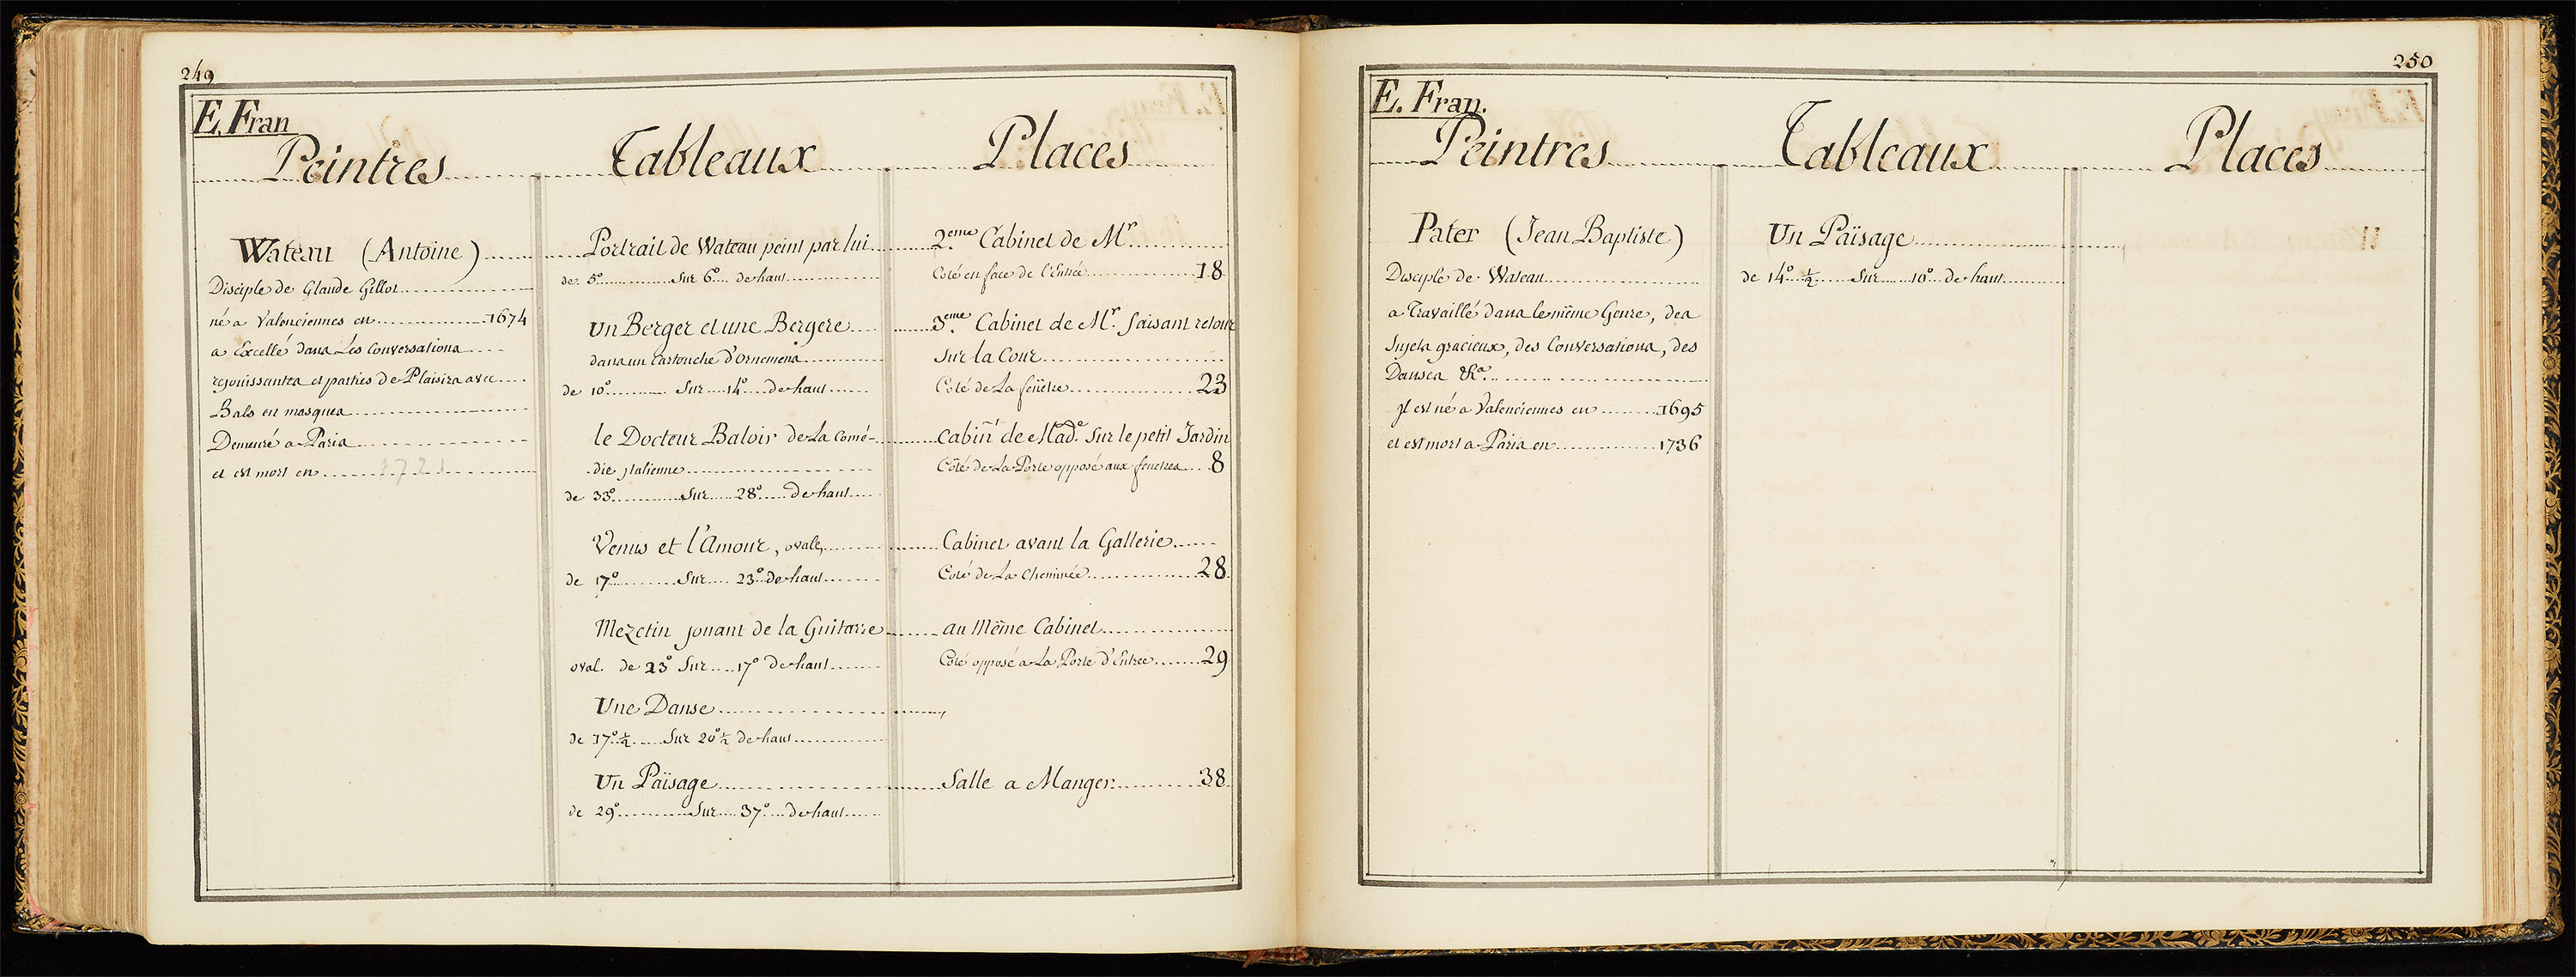 249
E. Fran
Peintres Tableaux Places
Wateau (Antoine)
Disciple de Glaude Gillot
né a Valenciennes en 1674
a Excellé dans Les Conversations
rejouissantes et parties de Plaisirs avec
Bals en masques
Demeuré a Paris
et est mort en 1721
Portrait de Wateau peint par lui
de 5° Sur 6° de haut
Un Berger et une Bergere
dans un Cartouche d'Ornemens
de 10° Sur 14° de haut
le Docteur Baloir de La Comé-
die jtalienne
de 33° Sur 28° de haut
Venus et l'Amour, ovale,
de 17° Sur 23° de haut
Mezetin jouant de la Guitarre
oval. de 23° Sur 17° de haut
Une Danse
de 17° ½ Sur 20° ½ de haut
Un Païsage
de 29° Sur 37° de haut
2.eme Cabinet de Mr
Coté en face de l'Entrée 18
3.eme Cabinet de Mr. faisant retour
Sur la Cour
Coté de La fenêtre 23
Cabin.t de Mad.e Sur le petit Jardin
Côté de La Porte opposé aux fenetres 8
Cabinet avant la Gallerie
Coté de La Cheminée 28
au Même Cabinet
Côté opposé a La Porte d'Entrée 29
Salle a Manger 38
250
E. Fran.
Peintres Tableaux Places
Pater (Jean Baptiste)
Disciple de Wateau
a Travaillé dans le même Genre, des
Sujets gracieux, des Conversations, des
Danses &c.a
Jl est né a Valenciennes en 1695
et est mort a Paris en 1736
Un Païsage
de 14° ½ Sur 10° de haut